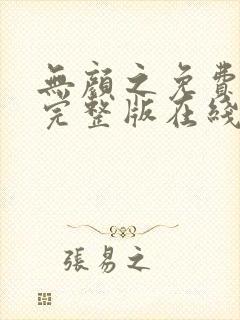 無顏之免費
完整版在綫
張易之